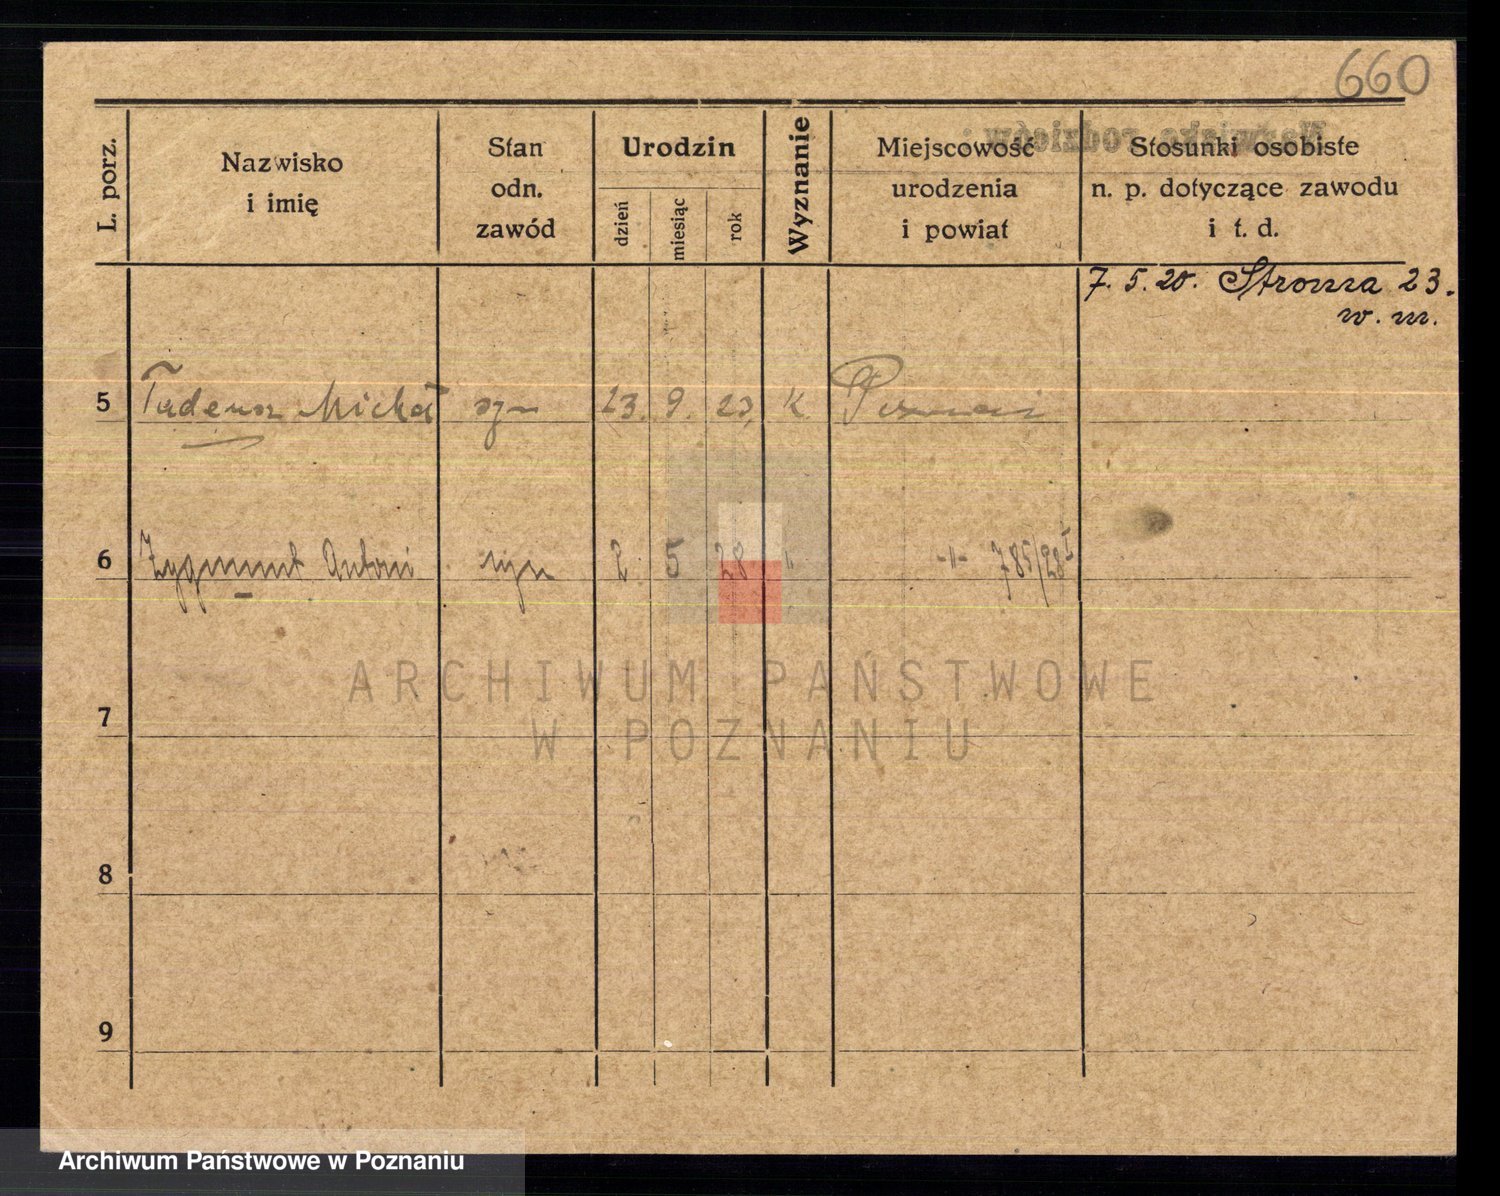 660
L. porz.
Nazwisko
i imię
Stan
odn.
zawód
Urodzin
dzień
miesiąc
rok
Wyznanie
Miejscowość
urodzenia
i powiat
Stosunki osobiste
n. p. dotyczące zawodu
i t. d.
Nazwisko rodziców:
7. 5. 20. Stroma 23.
w. m.
5 Tadeusz Michał syn 23. 9. 23 K. Poznań
6 Zygmunt Antoni syn 2 5 28 " -"- 785/28 I
7
8
9
ARCHIWUM PAŃSTWOWE
W POZNANIU
Archiwum Państwowe w Poznaniu